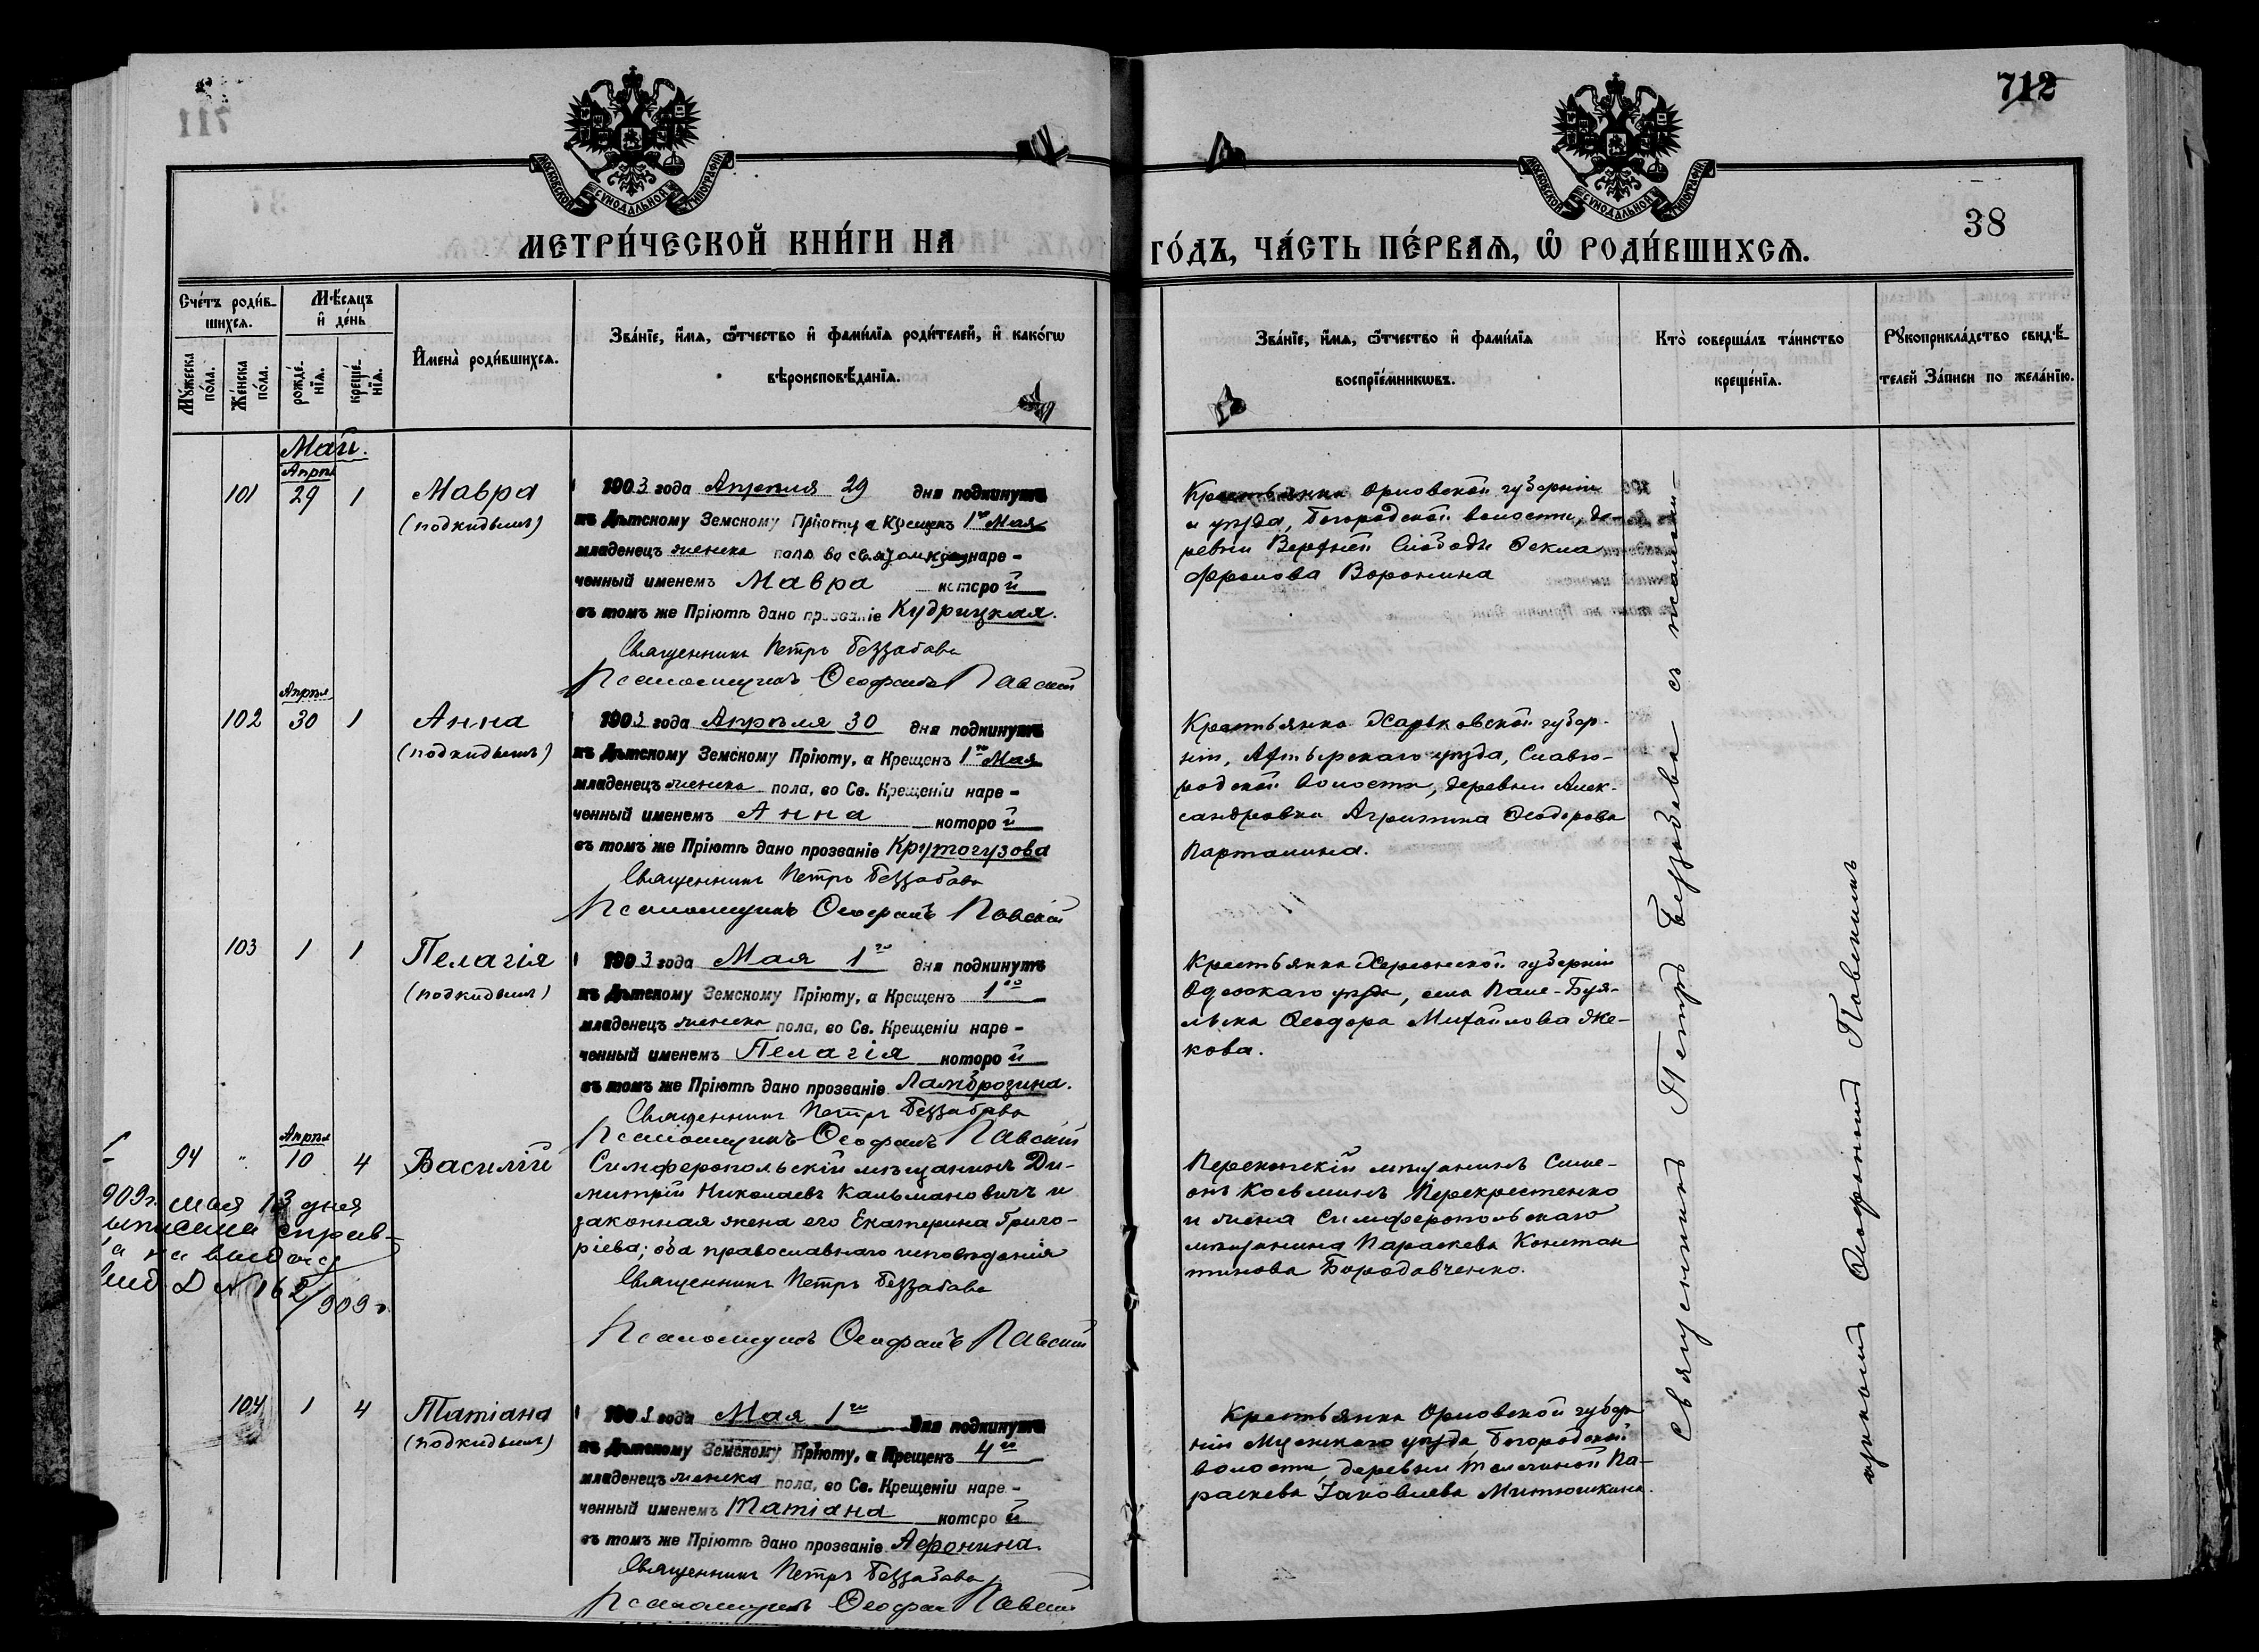 711
712
38
МОСКОВСКОЙ СѴНОДАЛЬНОЙ ТИПОГРАФІИ
МОСКОВСКОЙ СѴНОДАЛЬНОЙ ТИПОГРАФІИ
МЕТРИ́ЧЕСКОЙ КНИ́ГИ НА
ГО́ДЪ, ЧА́СТЬ ПЕ́РВАѦ, Ѡ҆ РОДИ́ВШИХСѦ.
Сче́тъ роди́в-
шихсѧ.
Мѣ́сѧцъ
и҆ де́нь
Мꙋ́жеска по́ла.
Же́нска по́ла.
рожде́-
нїѧ.
креще́-
нїѧ.
И҆мена̀ роди́вшихсѧ.
Зва́нїе, и҆́мѧ, ѻ҆́тчество и҆ фами́лїѧ роди́телей, и҆ како́гѡ
вѣроисповѣ́данїѧ.
Зва́нїе, и҆́мѧ, ѻ҆́тчество и҆ фами́лїѧ
воспрїе́мникѡвъ.
Кто̀ соверша́лъ та́инство
креще́нїѧ.
Рꙋкоприкла́дство свидѣ́-
телей За́писи по жела́нїю.
Май.
Апрѣл
101 29 1 Мавра
(подкидышъ)
1903 года Апрѣля 29 дня подкинутъ
къ Дѣтскому Земскому Пріюту, а Крещенъ 1го Мая
младенецъ женска пола во святом наре-
ченный именемъ Мавра которой
въ томъ же Пріютѣ дано прозваніе Кудрицкая.
Священникъ Петръ Беззабава
Псаломщикъ Ѳеофанъ Павскій
Крестьянка Орловской губерніи
и уѣзда, Богородской волости, де-
ревни Верхней Слободы Ѳекла
Фролова Воронина
Апрѣл
102 30 1 Анна
(подкидышъ)
1903 года Апрѣля 30 дня подкинутъ
къ Дѣтскому Земскому Пріюту, а Крещенъ 1го Мая
младенецъ женска пола, во Св. Крещеніи наре-
ченный именемъ Анна которой
въ томъ же Пріютѣ дано прозваніе Крутогузова
Священникъ Петръ Беззабава
Псаломщикъ Ѳеофанъ Павскій
Крестьянка Харьковской губер-
ніи, Ахтырскаго уѣзда, Славго-
родской волости, деревни Алек-
сандровки Агрипина Ѳеодорова
Парталина.
103 1 1 Пелагія
(подкидышъ)
1903 года Мая 1го дня подкинутъ
къ Дѣтскому Земскому Пріюту, а Крещенъ 1го
младенецъ женска пола, во Св. Крещеніи наре-
ченный именемъ Пелагія которой
въ томъ же Пріютѣ дано прозваніе Ламброзина.
Священникъ Петръ Беззабава
Псаломщикъ Ѳеофанъ Павскій
Крестьянка Херсонской губерніи
Одесскаго уѣзда, села Паше-Буя-
лыка Ѳеодора Михайлова Же-
кова.
Апрѣл
94 " 10 4 Василій
909 г. мая 13 дня
справ-
на выдачу
№ 162/909 г.
Симферопольскій мѣщанинъ Ди-
митрій Николаевъ Кальмановичъ и
законная жена его Екатерина Григо-
ріева; оба православнаго исповѣданія
Священникъ Петръ Беззабава
Псаломщикъ Ѳеофанъ Павскій
Перекопскій мѣщанинъ Симе-
онъ Косьминъ Перекрестенко
и жена Симферопольскаго
мѣщанина Параскева Констан
тинова Бородавченко.
104 1 4 Татіана
(подкидышъ)
1903 года Мая 1го дня подкинутъ
къ Дѣтскому Земскому Пріюту, а Крещенъ 4го
младенецъ женска пола, во Св. Крещеніи наре-
ченный именемъ Татіана которой
въ томъ же Пріютѣ дано прозваніе Афонина.
Священникъ Петръ Беззабава
Псаломщикъ Ѳеофан Павскій
Крестьянка Орловской губер
ніи Мценскаго уѣзда Богородской
волости, деревни Па-
раскева Іаковлева Митюшкина.
Священникъ Петръ Беззабава съ псалом-
щикомъ Ѳеофаномъ Павскимъ